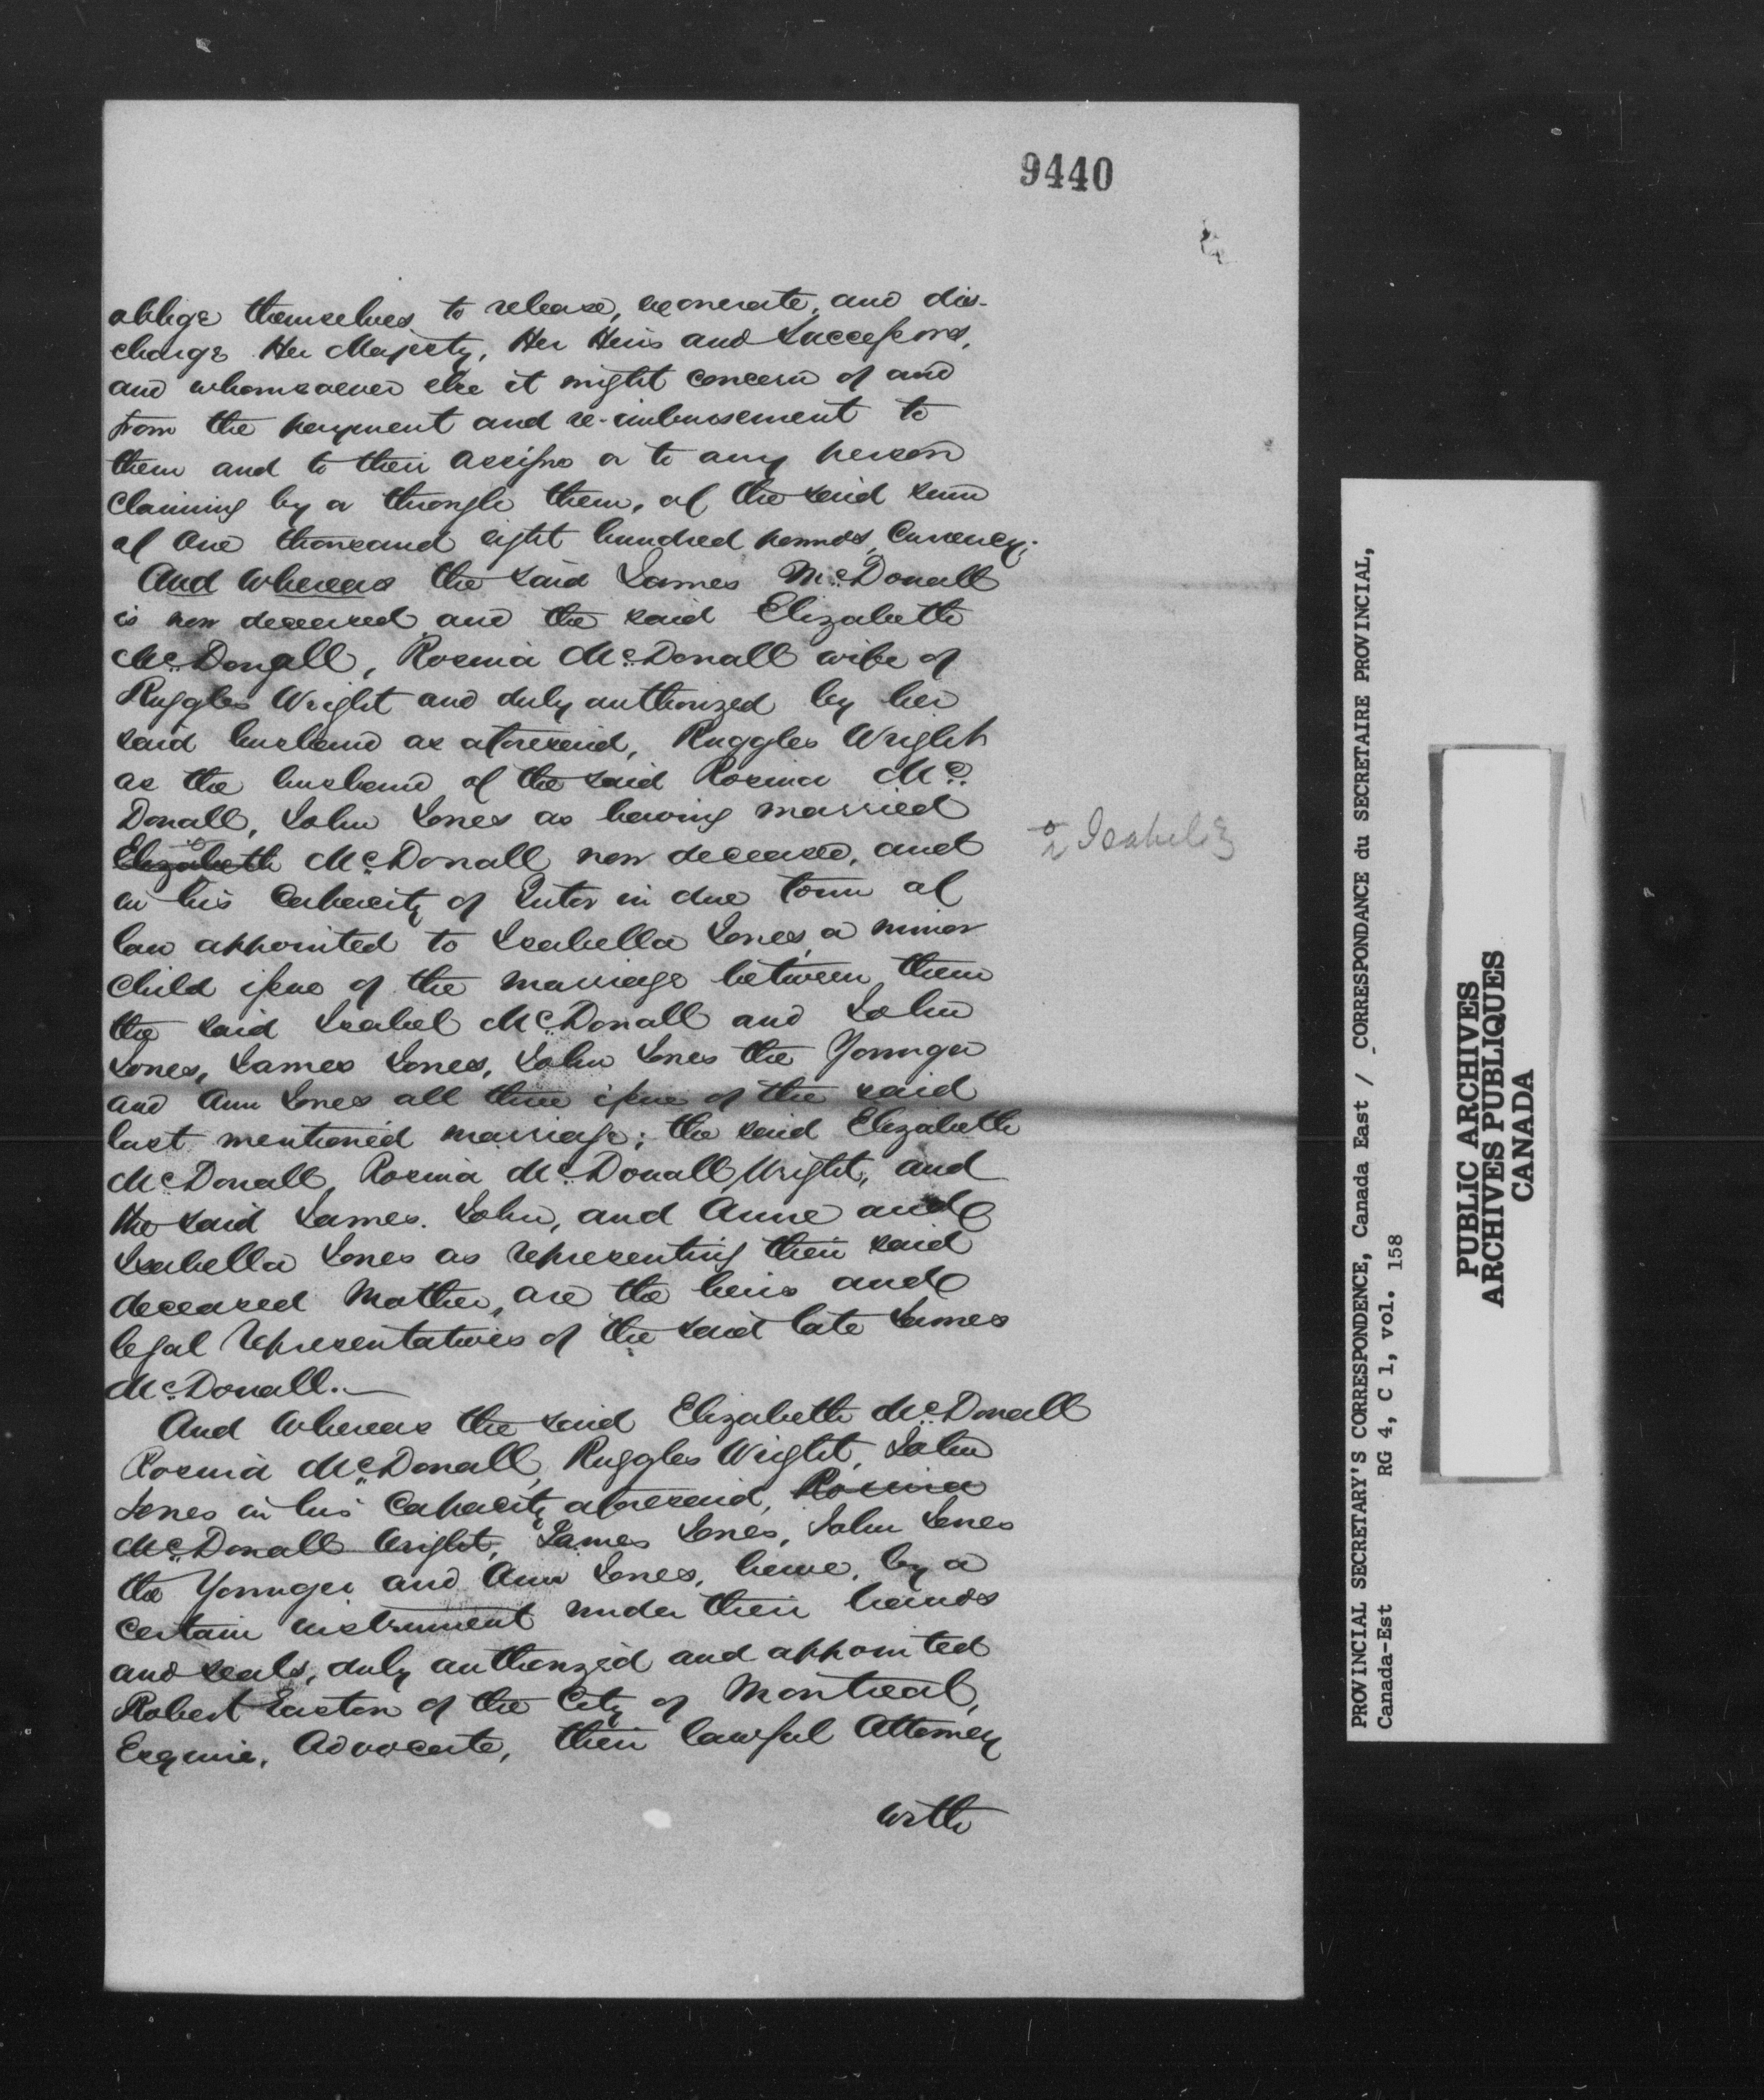 9440
oblige themselves to release, exonerate, and dis-
charge Her Majesty, Her Heirs and Successors,
and whomsoever else it might concern of and
from the payment and re-imbursement to
them and to their assigns or to any person
claiming by or through them, of the said sum
of One thousand eight hundred pounds, Currency.
And Whereas the said James McDonall
is now deceased and the said Elizabeth
McDonall, Rosina McDonall wife of
Ruggles Wright and duly authorized by her
said husband as aforesaid, Ruggles Wright
as the husband of the said Rosina Mc
Donall, John Jones as having married
Elizabeth McDonall now deceased, and
Isabel
in his Capacity of Tutor in due form of
law appointed to Isabella Jones, a minor
child issue of the marriage between them
the said Isabel McDonall and John
Jones, James Jones, John Jones the Younger
and Ann Jones all three issue of the said
last mentioned marriage; the said Elizabeth
McDonall, Rosina McDonall Wright, and
the said James. John, and Anne and
Isabella Jones as representing their said
deceased Mother, are the heirs and
legal representatives of the said late James
McDonall.—
And Whereas the said Elizabeth McDonall
Rosina McDonall, Ruggles Wright, John
Jones in his Capacity aforesaid, Rosina
McDonall Wright, James Jones, John Jones
the Younger and Ann Jones, have, by a
certain instrument under their hands
and seals, duly authorized and appointed
Robert Easton of the City of Montreal,
Esquire, Advocate, their lawful Attorney
with
PROVINCIAL SECRETARY'S CORRESPONDENCE, Canada East / CORRESPONDANCE du SECRETAIRE PROVINCIAL,
Canada-Est RG 4, C 1, vol. 158
PUBLIC ARCHIVES
ARCHIVES PUBLIQUES
CANADA